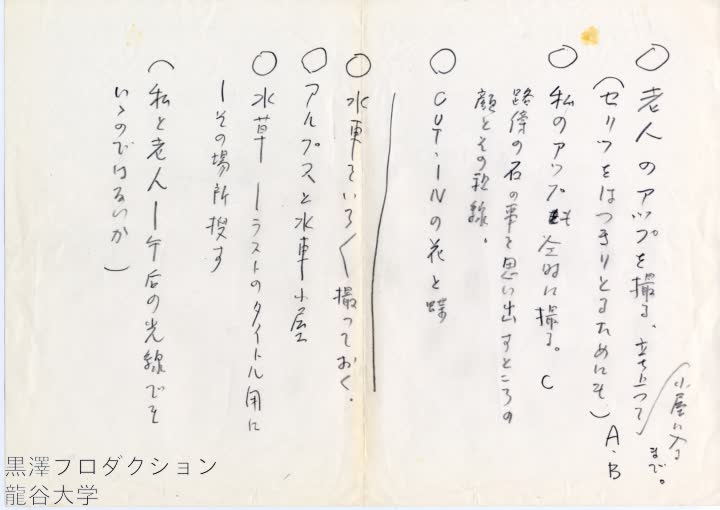 ○ 老人のアップを撮る、立ち上つて小屋に入るまで。
(セリフをはつきりとるためにも) A.B
○ 私のアップも仝時に撮る。 C
路傍の石の事を思い出すところの
顔とその視線。
○ CUT-INの花と蝶
○ 水車をいろ〱撮つておく.
○ アルプスと水車小屋
○ 水草 ーラストのタイトル用に
ーその場所探す
(私と老人ー午后の光線でも
いゝのではないか)
黒澤プロダクション
龍谷大学